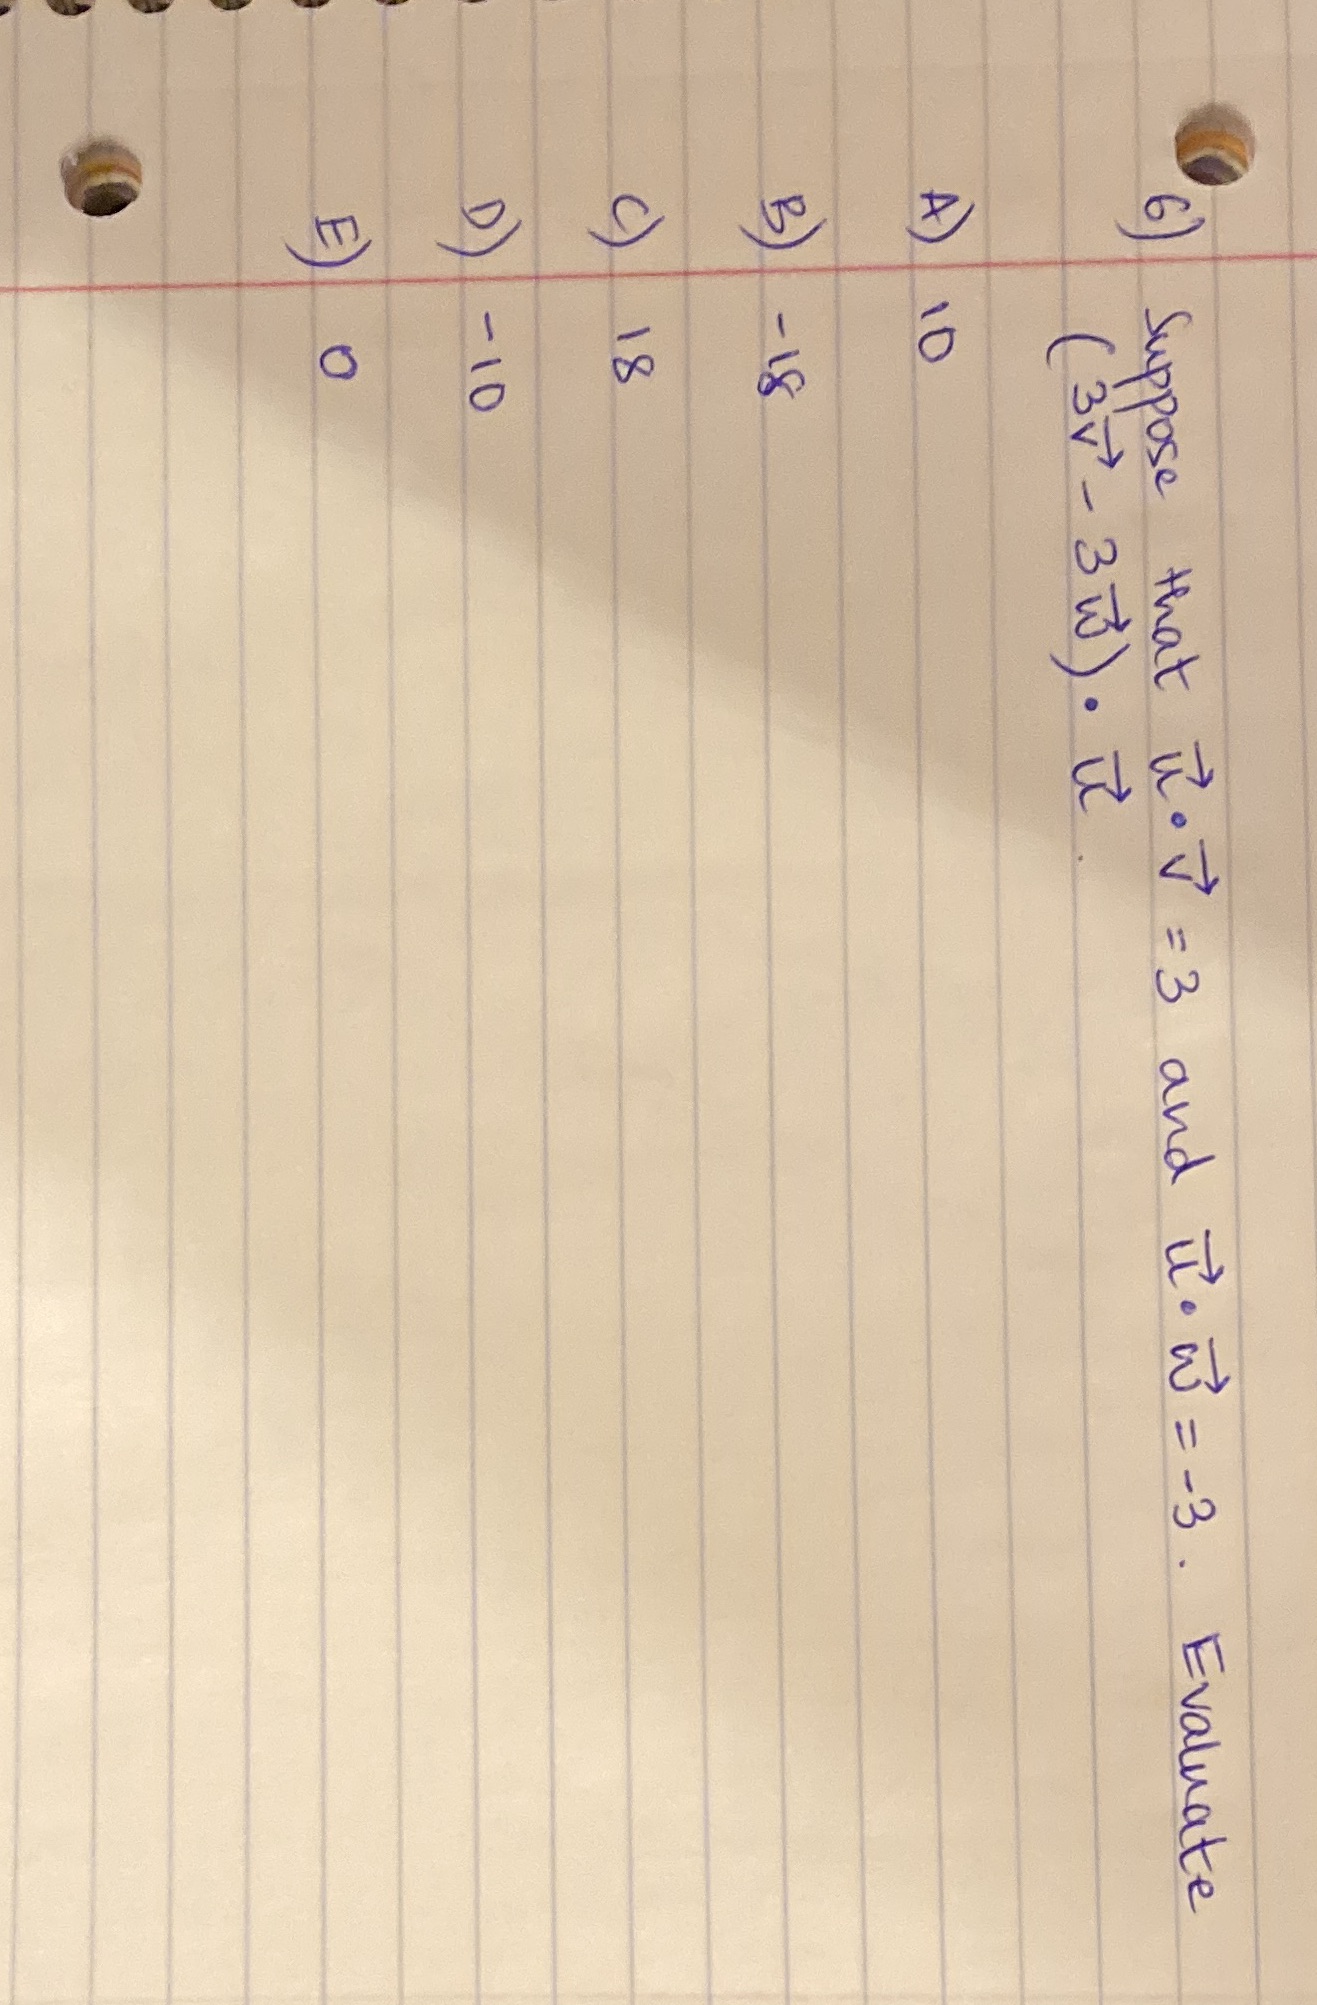 6) Suppose that u⃗ · v⃗ = 3 and u⃗ · w⃗ = -3. Evaluate
(3v⃗ - 3w⃗) · u⃗
A) 10
B) -18
C) 18
D) -10
E) 0